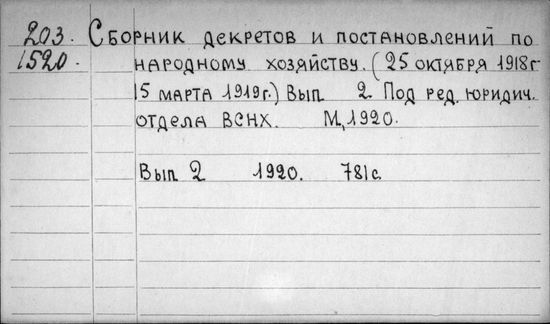 203. Сборник декретов и постановлений по
1520. народному хозяйству. (25 октября 1918г
15 марта 1919г.) Вып 2 Под ред. юридич.
отдела ВСНХ. М, 1920.
Вып 2 1920. 781 с.